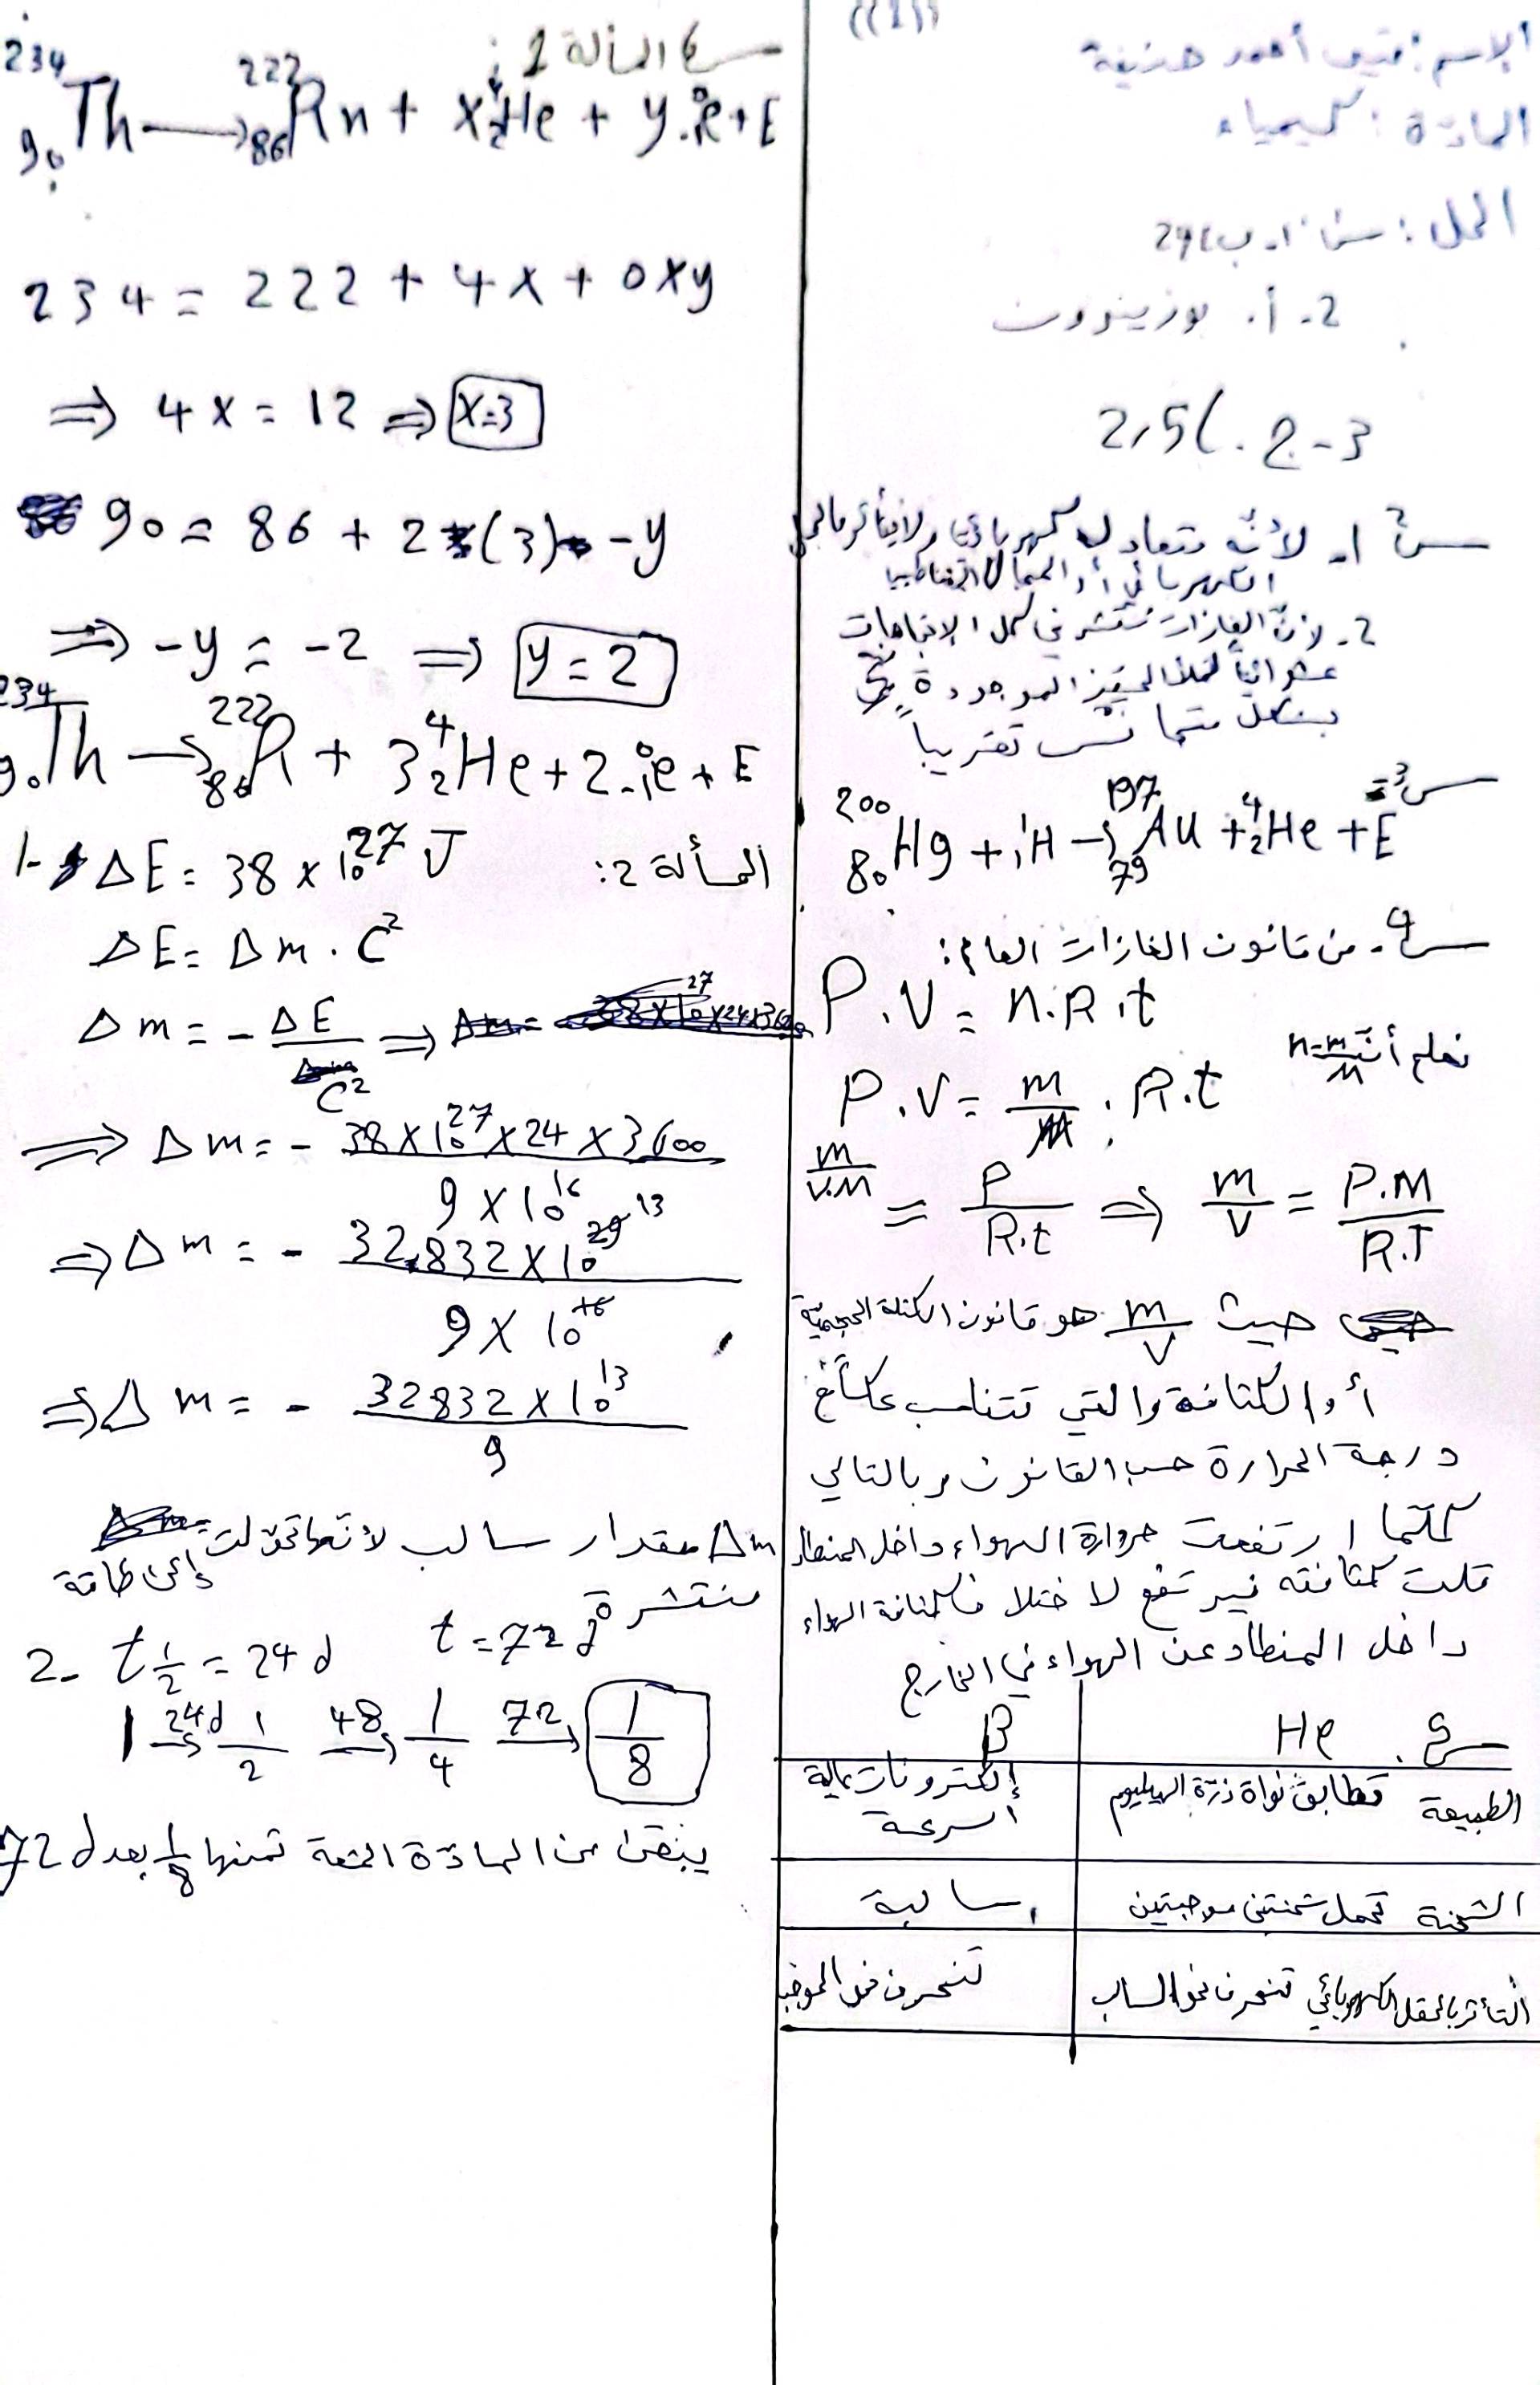 ((1))
الإسم: قتيبة أحمد حنيفة
المادّة: كيمياء
الحل: س1: 1. ب) 24
2. أ. بوزيترون
3 - ج. 2,5 L
س2 1. لأنّه متعادل كهربائي ولا يتأثر بالمجال
الكهربائي أو المجال المغناطيسي
2. لأنّ الغازات تنتشر في كل الاتجاهات
عشوائياً لتملأ الحيّز الموجودة فيه
بشكل متجانس تقريباً
س3 =
²⁰⁰₈₀Hg + ¹₁H → ¹⁹⁷₇₉Au + ⁴₂He + E
س4. من قانون الغازات العام:
P.V = n.R.t
نعلم أنّ n = m/M
P.V = m/M . R.t
m/V.M = P/R.t ⇒ m/V = P.M/R.T
حيث m/V هو قانون الكتلة الحجمية
أو الكثافة والتي تتناسب عكساً مع
درجة الحرارة حسب القانون وبالتالي
كلّما ارتفعت حرارة الهواء داخل المنطاد
قلت كثافته فيرتفع لاختلاف كثافة الهواء
داخل المنطاد عن الهواء في الخارج
س5. He β
الطبيعة تطابق نواة ذرّة الهيليوم إلكترونات عالية السرعة
الشحنة تحمل شحنتين موجبتين سالبة
التأثر بالحقل الكهربائي تنحرف نحو السالب تنحرف نحو الموجب
س6 المسألة 1:
²³⁴₉₀Th → ²²²₈₆Rn + x⁴₂He + y⁰₋₁e + E
234 = 222 + 4x + 0xy
⇒ 4x = 12 ⇒ x=3
90 = 86 + 2(3) - y
⇒ -y = -2 ⇒ y = 2
²³⁴₉₀Th → ²²²₈₆R + 3⁴₂He + 2⁰₋₁e + E
المسألة 2:
1- ΔE = 38 x 10²⁷ J
ΔE = Δm . C²
Δm = - ΔE/C² ⇒
⇒ Δm = - 38 x 10²⁷ x 24 x 3600 / 9 x 10¹⁶
⇒ Δm = - 32832 x 10²⁹ ¹³ / 9 x 10¹⁶
⇒ Δm = - 32832 x 10¹³ / 9
Δm مقدار سالب لأنها تحوّلت إلى طاقة
منتشرة
2- t½ = 24 d t = 72 d
1 →24d 1/2 →48 1/4 →72 1/8
يتبقى من المادّة المشعة ثمنها 1/8 بعد 72 d